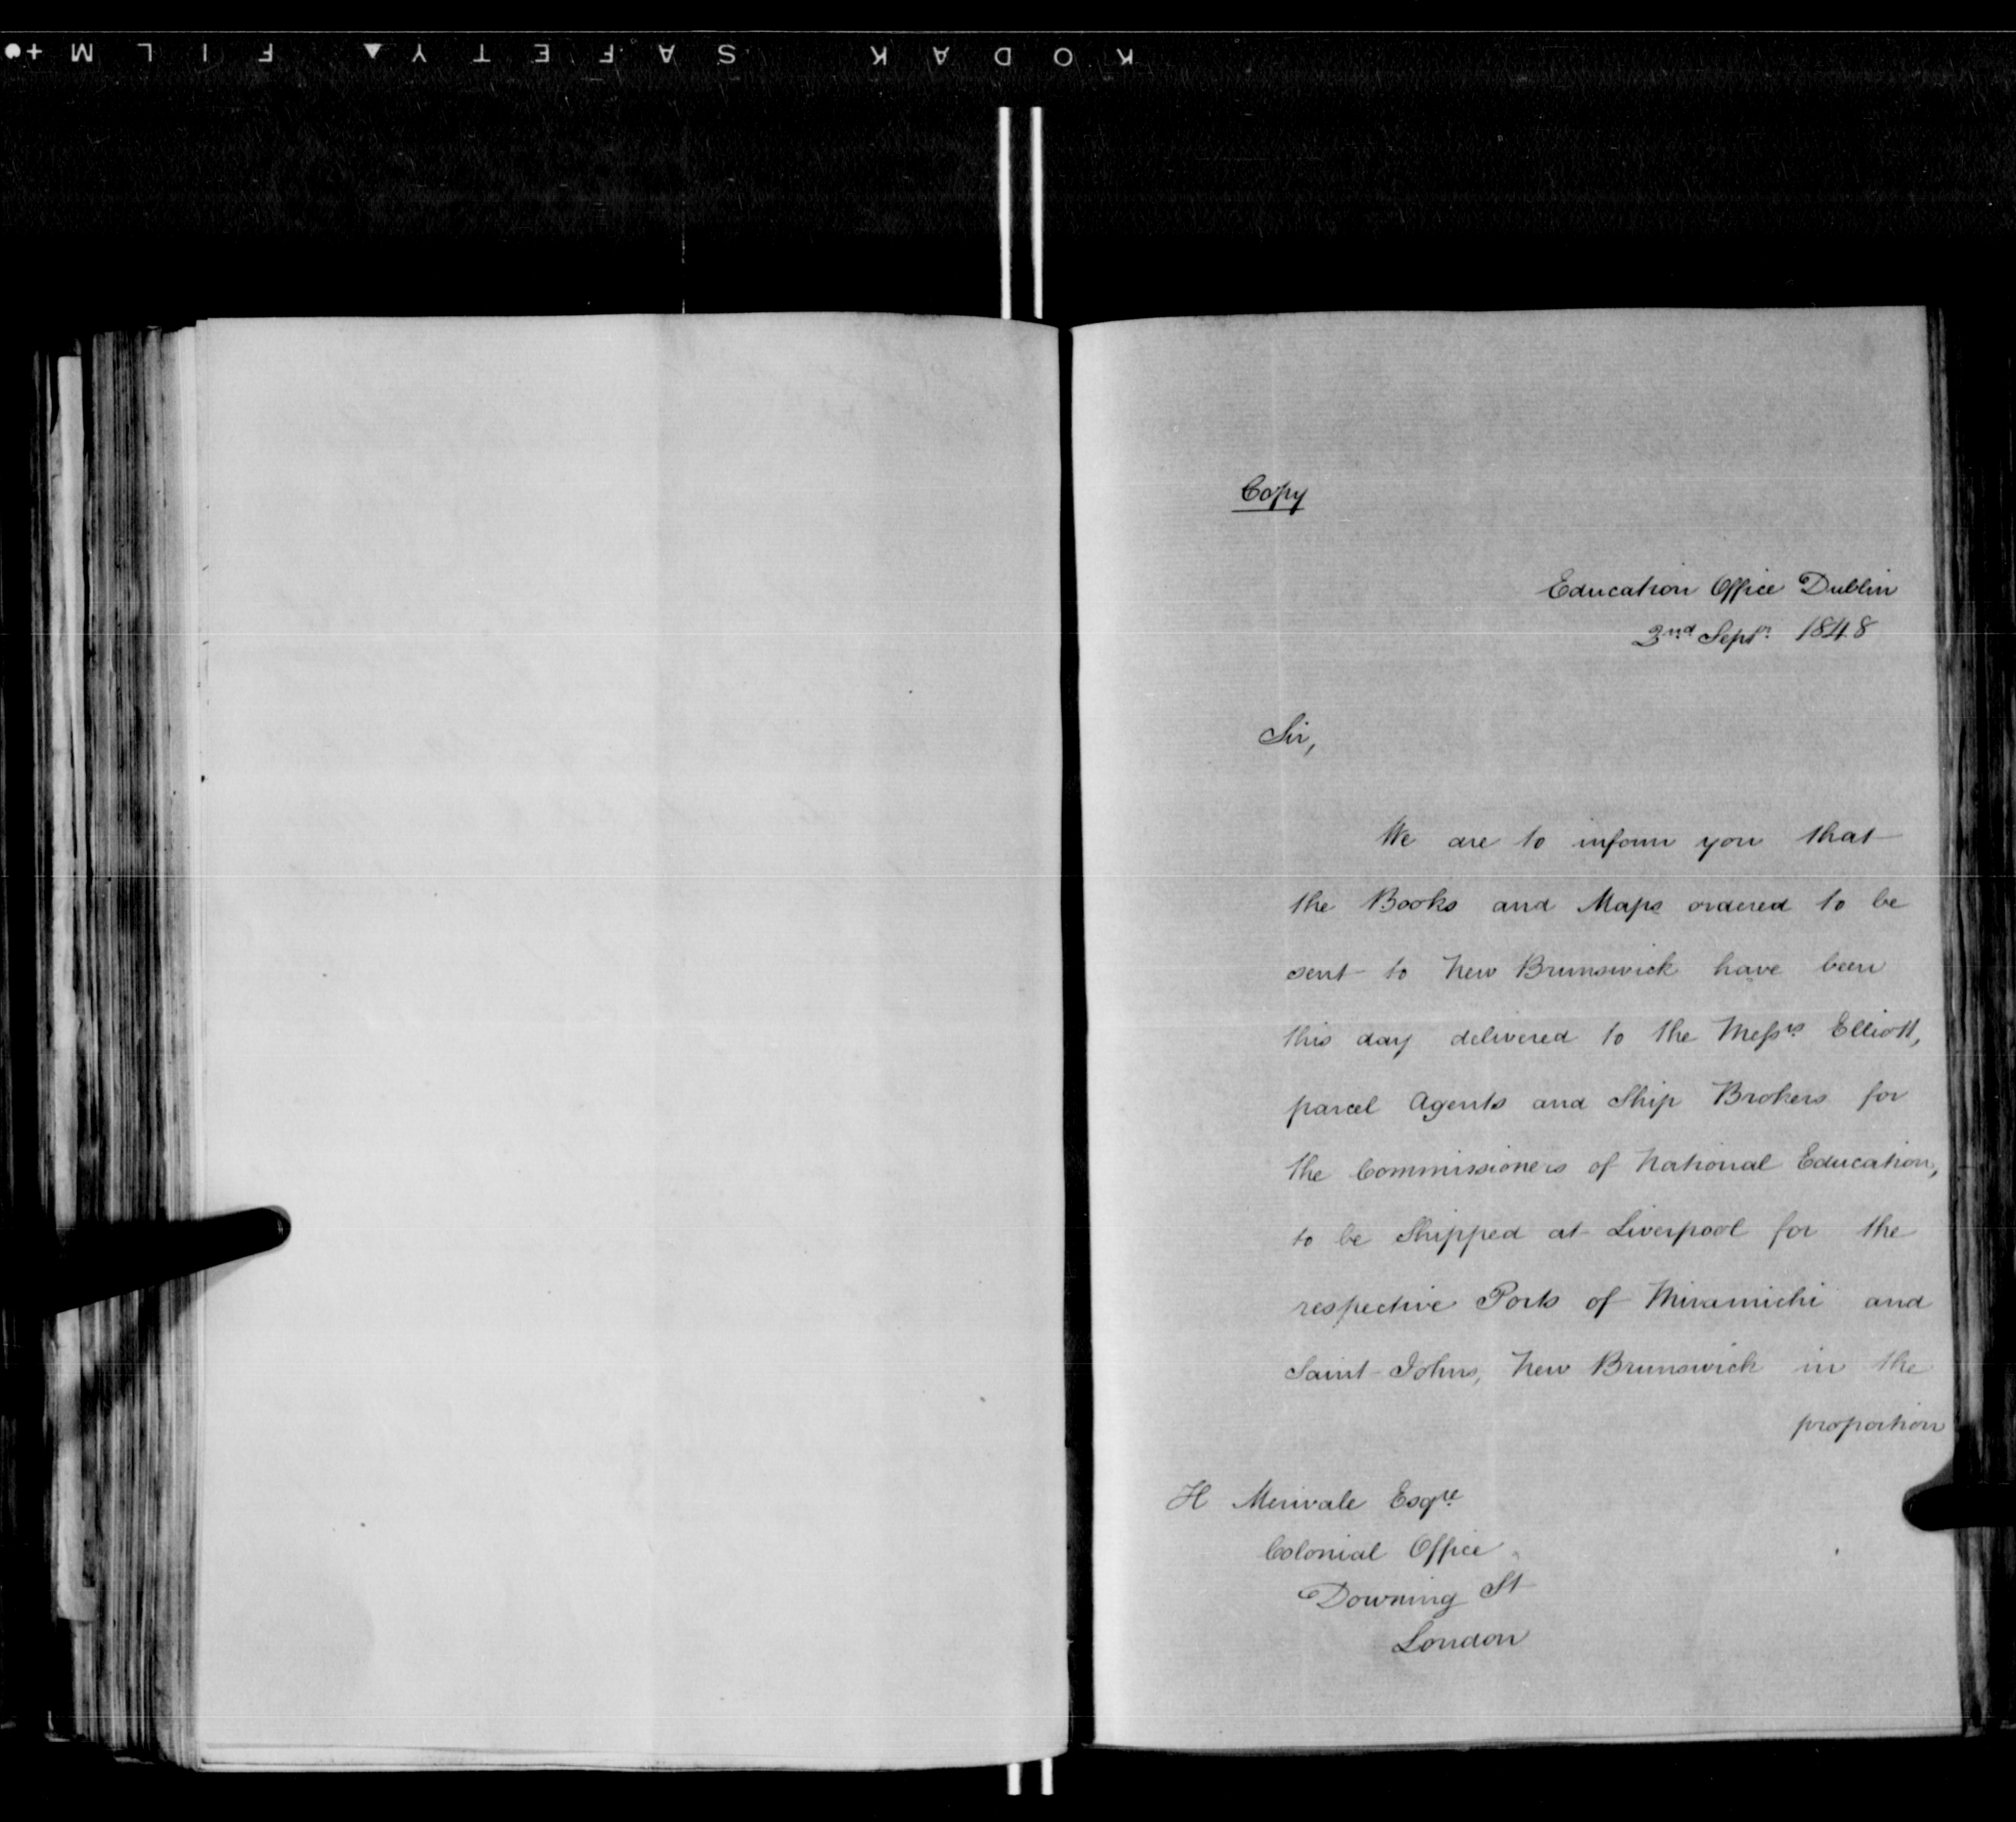 KODAK SAFETY FILM
Copy
Education Office Dublin
2nd Septr. 1848
Sir,
We are to inform you that
the Books and Maps ordered to be
sent to New Brunswick have been
this day delivered to the Messrs. Elliott,
parcel Agents and Ship Brokers for
the Commissioners of National Education,
to be Shipped at Liverpool for the
respective Ports of Miramichi and
Saint Johns, New Brunswick in the
proportion
H Merivale Esqre.
Colonial Office
Downing St
London